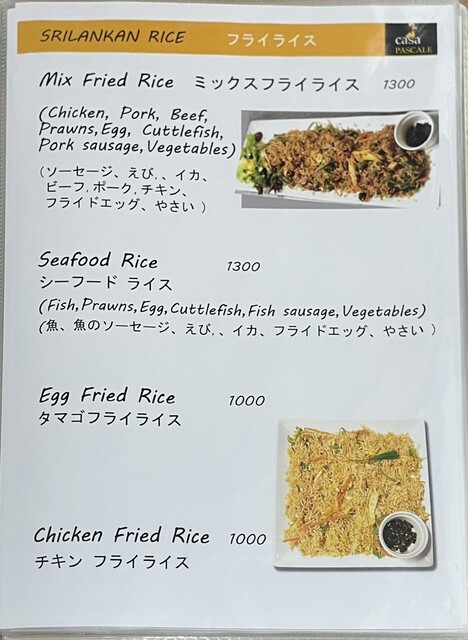 SRILANKAN RICE フライライス
casa
PASCALE
Mix Fried Rice ミックスフライライス 1300
(Chicken, Pork, Beef,
Prawns,Egg, Cuttlefish,
Pork sausage,Vegetables)
(ソーセージ、えび,、イカ、
ビーフ,ポーク,チキン、
フライドエッグ、やさい )
Seafood Rice 1300
シーフード ライス
(Fish,Prawns,Egg,Cuttlefish,Fish sausage,Vegetables)
(魚、魚のソーセージ、えび,、イカ、フライドエッグ、やさい )
Egg Fried Rice 1000
タマゴフライライス
Chicken Fried Rice 1000
チキン フライライス